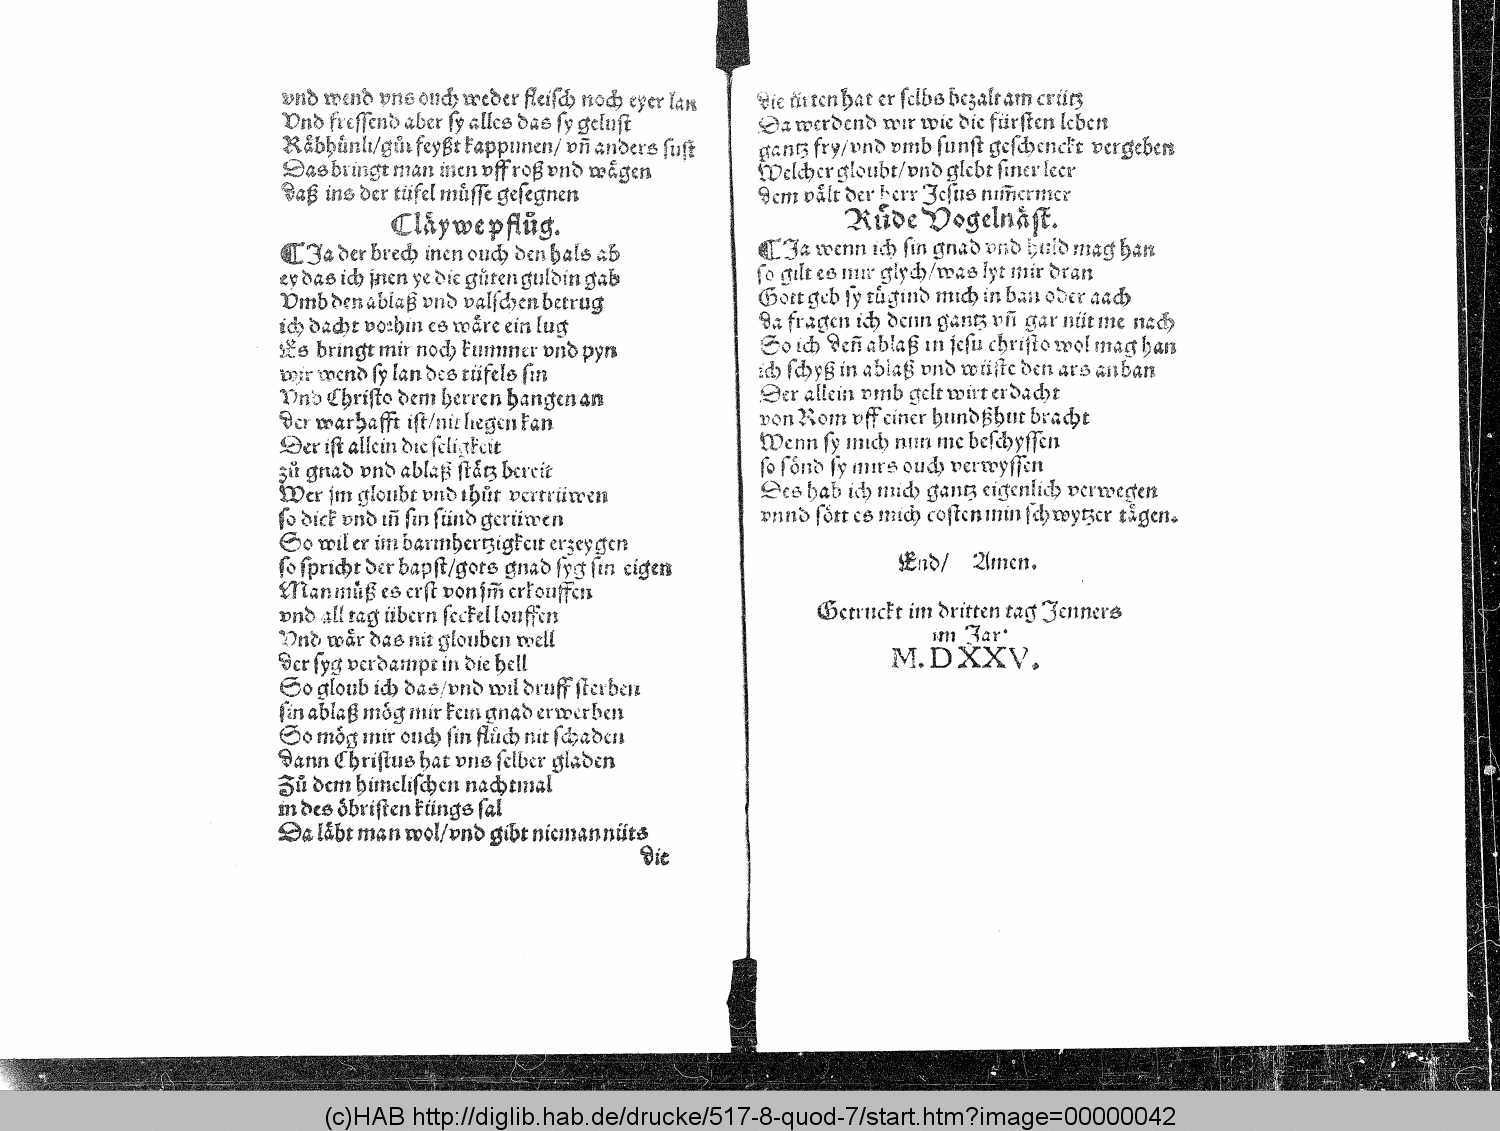 vnd wend vns ouch weder fleisch noch eyer lan
Vnd fressend aber sy alles das sy gelust
Råbhůnli/gůt feyßt kappunen/ vñ anders sust
Das bringt man inen vff roß vnd wågen
daß ins der tüfel můsse gesegnen
Clåywe pflůg.
¶ Ja der brech inen ouch den hals ab
ey das ich jnen ye die gůten guldin gab
Vmb den ablaß vnd valschen betrug
ich dacht vorhin es wåre ein lug
Es bringt mir noch kummer vnd pyn
wir wend sy lan des tüfels sin
Vnd Christo dem herren hangen an
der warhafft ist/nit liegen kan
Der ist allein die seligkeit
zů gnad vnd ablaß ståtz bereit
Wer jm gloubt vnd thůt vertrüwen
so dick vnd iñ sin sünd gerüwen
So wil er im barmhertzigkeit erzeygen
so spricht der bapst/gots gnad syg sin eigen
Man můß es erst von jm̃ erkouffen
vnd all tag übern seckel louffen
Vnd wår das nit glouben well
der syg verdampt in die hell
So gloub ich das/vnd wil druff sterben
sin ablaß mög mir kein gnad erwerben
So mög mir ouch sin flůch nit schaden
dann Christus hat vns selber gladen
Zů dem himelischen nachtmal
in des öbristen küngs sal
Da låbt man wol/vnd gibt nieman nüts
die
die ürten hat er selbs bezalt am crütz
Da werdend wir wie die fürsten leben
gantz fry/vnd vmb sunst geschenckt vergeben
Welcher gloubt/vnd glebt siner leer
dem vålt der herr Jesus nim̃ermer
Růde Vogelnåst.
¶ Ja wenn ich sin gnad vnd huld mag han
so gilt es mir glych/was lyt mir dran
Gott geb sy tůgind mich in ban oder aach
da fragen ich denn gantz vñ gar nüt me nach
So ich deñ ablaß in jesu christo wol mag han
ich schyß in ablaß vnd wüste den ars an ban
Der allein vmb gelt wirt erdacht
von Rom vff einer hundßhut bracht
Wenn sy mich nun me beschyssen
so sönd sy mirs ouch verwyssen
Des hab ich mich gantz eigenlich verwegen
vnnd sött es mich costen min schwytzer tågen.
End/ Amen.
Getruckt im dritten tag Jenners
im Jar
M. D XXV.
(c)HAB http://diglib.hab.de/drucke/517-8-quod-7/start.htm?image=00000042